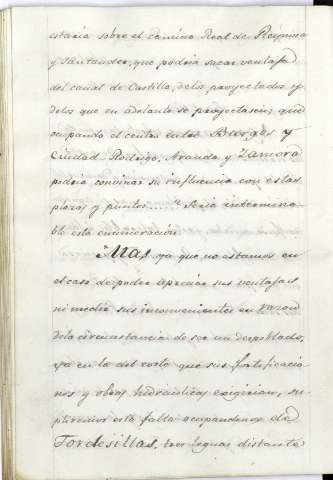 estaria sobre el camino Real de Reynosa
y Santander, que podria sacar ventajas
del canal de Castilla, de los proyectados y
de los que en adelante se proyectasen; que
ocupando el centro entre Burgos y
Ciudad Rodrigo, Aranda y Zamora
podria convinar su influencia con estas
plazas y puntos..... Seria intermina-
ble esta enumeracion.
Mas ya que no estamos en
el caso de poder apreciar sus ventajas
ni medir sus inconvenientes en razon
de la circunstancia de ser un despoblado,
ya en la del costo que sus fortificacio-
nes y obras hidraulicas exigirian, su-
pliremos esta falta ocupandonos de
Tordesillas, tres leguas distante